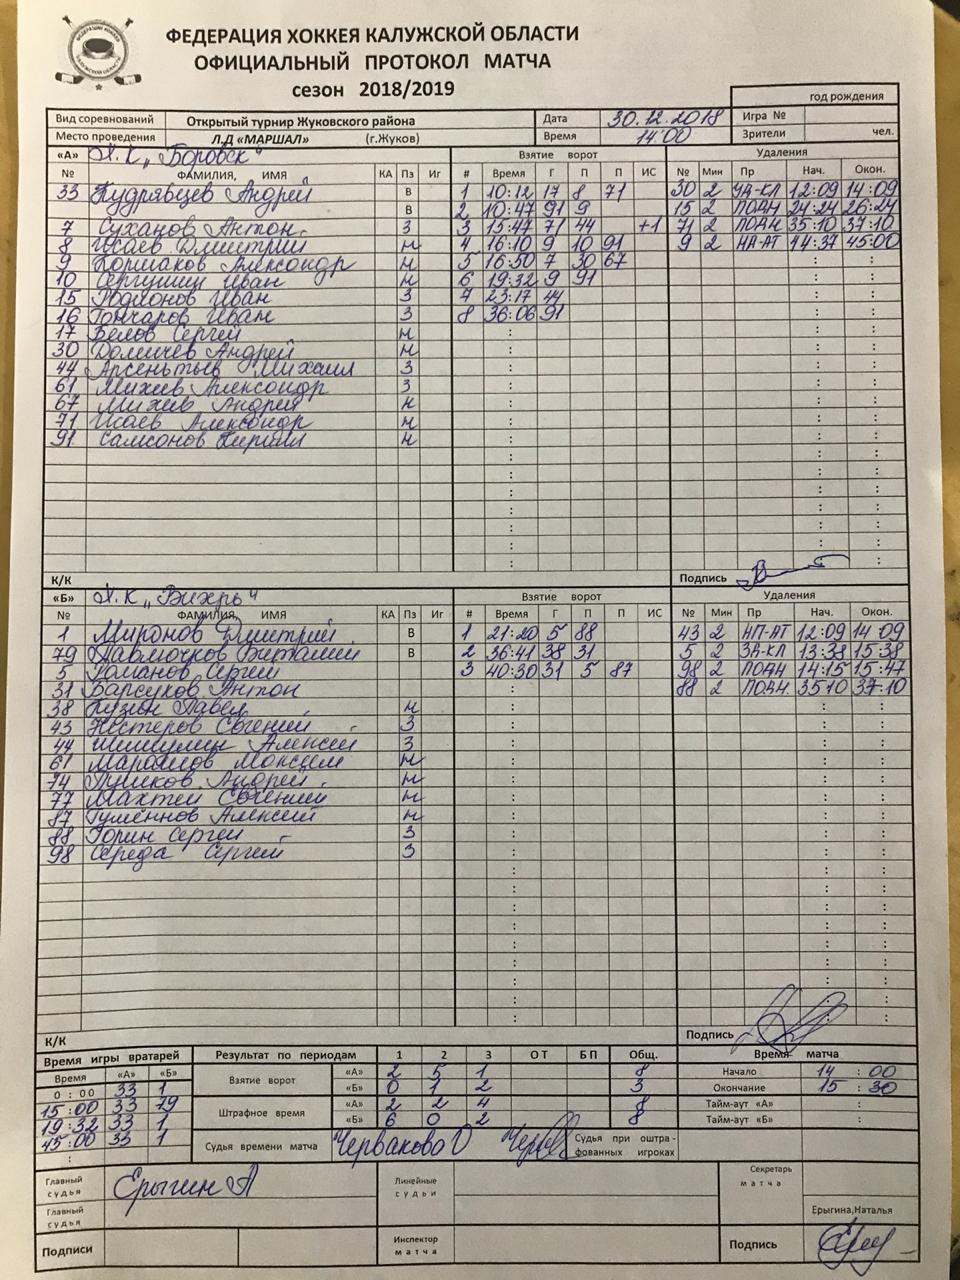 ФЕДЕРАЦИЯ ХОККЕЯ КАЛУЖСКОЙ ОБЛАСТИ
ОФИЦИАЛЬНЫЙ ПРОТОКОЛ МАТЧА
сезон 2018/2019
год рождения
Вид соревнований Открытый турнир Жуковского района Дата 30.12.2018 Игра №
Место проведения Л.Д «МАРШАЛ» (г.Жуков) Время 14:00 Зрители чел.
«А» Х.К „Боровск“ Взятие ворот Удаления
№ ФАМИЛИЯ, ИМЯ КА Пз Иг # Время Г П П ИС № Мин Пр Нач. Окон.
33 Кудрявцев Андрей В 1 10:12 17 8 71 30 2 12:09 14:09
В 2 10:47 91 9 15 2 ПОДН 24:24 26:24
7 Суханов Антон З 3 15:47 71 44 +1 71 2 ПОДН 35:10 37:10
8 Исаев Дмитрий Н 4 16:10 9 10 91 9 2 НА-АТ 44:37 45:00
9 Александр Н 5 16:50 7 30 67
10 Иван Н 6 19:32 9 91
15 Родионов Иван З 7 23:17 44
16 Гончаров Иван З 8 36:06 91
17 Белов Сергей Н
30 Андрей Н
44 Михаил З
61 Михеев Александр З
67 Михеев Андрей Н
71 Исаев Александр Н
91 Самсонов Кирилл Н
К/К Подпись
«Б» Х.К „Вихрь“ Взятие ворот Удаления
№ ФАМИЛИЯ, ИМЯ КА Пз Иг # Время Г П П ИС № Мин Пр Нач. Окон.
1 Миронов Дмитрий В 1 21:20 5 88 43 2 НП-АТ 12:09 14:09
79 Павлючков Виталий В 2 36:41 38 31 5 2 ЗА-КЛ 13:38 15:38
5 Романов Сергей 3 40:30 31 5 87 98 2 ПОДН 14:15 15:47
31 Барсуков Антон 88 2 ПОДН. 35:10 37:10
38 Кузин Павел Н
43 Нестеров Евгений З
44 Алексей З
61 Максим Н
74 Андрей Н
77 Махтей Евгений Н
87 Алексей Н
88 Горин Сергей З
98 Середа Сергей З
К/К Подпись
Время игры вратарей Результат по периодам 1 2 3 ОТ БП Общ. Время матча
Время «А» «Б» Взятие ворот «А» 2 5 1 8 Начало 14:00
0:00 33 1 «Б» 0 1 2 3 Окончание 15:30
15:00 33 79 Штрафное время «А» 2 2 4 8 Тайм-аут «А» :
19:32 33 1 «Б» 6 0 2 8 Тайм-аут «Б» :
45:00 33 1 Судья времени матча Червакова О Судья при оштра-
фованных игроках
Главный судья Ерыгин А Линейные судьи Секретарь матча
Главный судья Ерыгина,Наталья
Подписи Инспектор матча Подпись